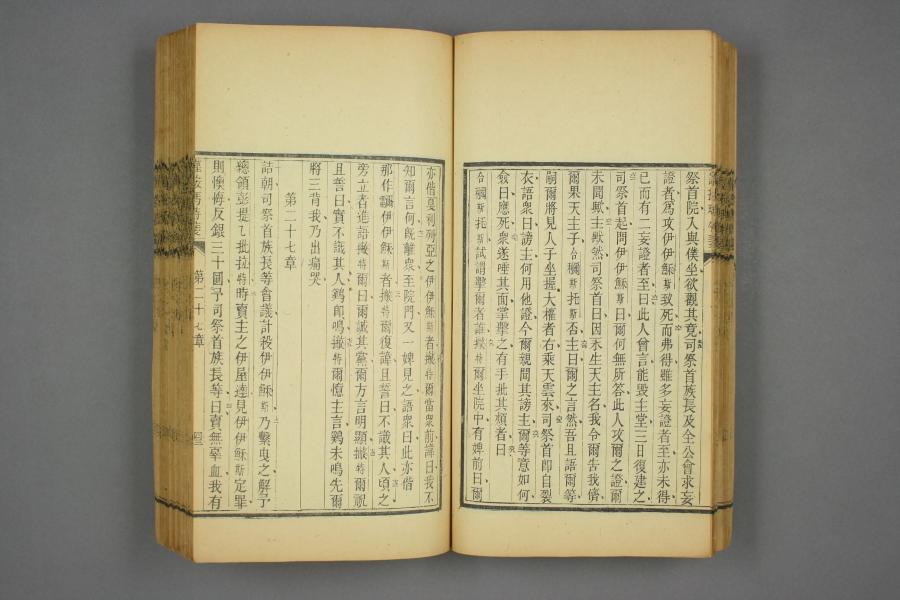 祭首院入與僕坐欲觀其竟司祭首族長及全公會求妄
證者爲攻伊伊穌斯致死而弗得雖多妄證者至亦未得
已而有二妄證者至曰此人曾言能毀主堂三日復建之
司祭首起問伊伊穌斯曰爾何無所答此人攻爾之證爾
未聞歟主默然司祭首曰因永生天主右我令爾告我儕
爾果天主子合礪斯托斯否主曰爾之言然吾且語爾等
嗣爾將見人子坐握大權者右乘天雲來司祭首即自裂
衣語衆曰謗主何用他證今爾親聞其謗主爾等意如何
僉曰應死衆遂唾其面掌擊之有手批其頰者曰
合礪斯托斯試謂擊爾者誰撇特爾坐院中有婢前曰爾
亦偕戛利列亞之伊伊穌斯者撇特爾當衆前諱曰我不
知爾言何旣離衆至院門又一婢見之語衆曰此亦偕
那作伊伊穌斯者撇特爾復諱且誓曰不識其人頃之
旁立者進語撇特爾曰爾誠其黨爾方言明顯撇特爾詛
且誓曰實不識其人鷄即鳴撇特爾憶主言鷄未鳴先爾
將三背我乃出痛哭
第二十七章
詰朝司祭首族長等會議計殺伊伊穌斯乃繫曳之解予
總領彭提乙批拉特時賣主之伊屋達見伊伊穌斯定罪
則懊悔反銀三十圓予司祭首族長等曰賣無辜血我有
第二十七章